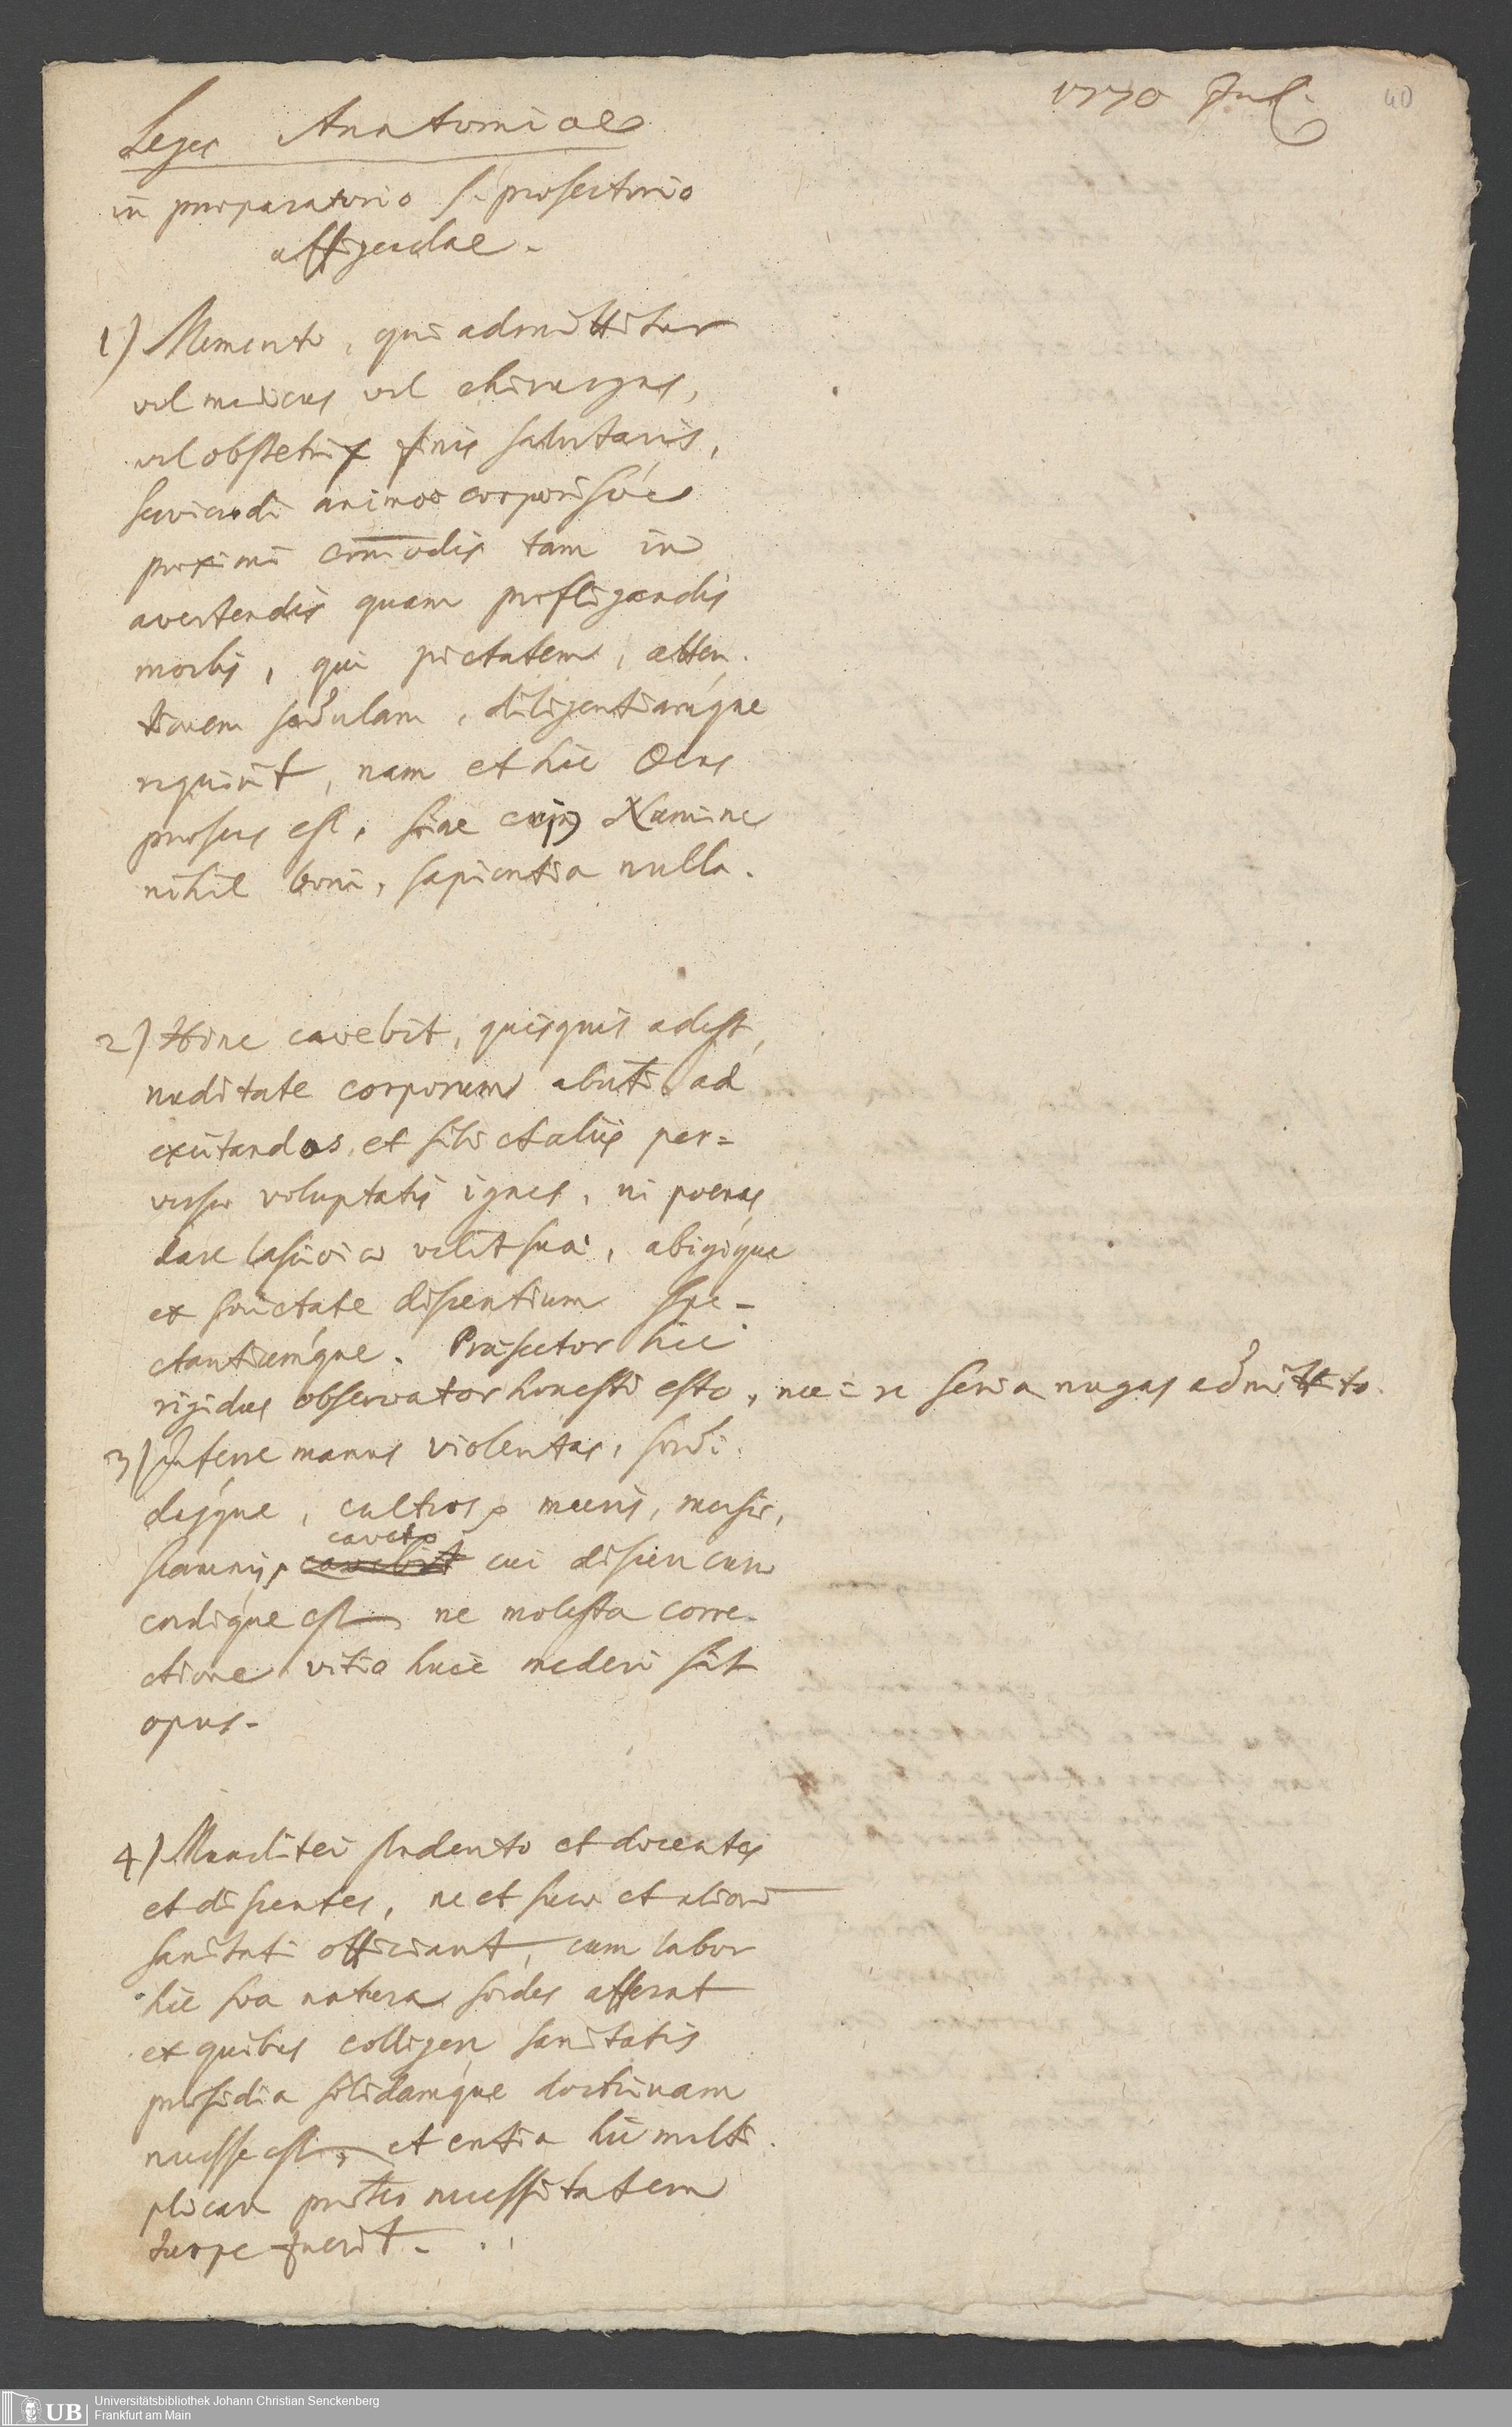 1770 Jul.
40
Leges Anatomiae
in praeparatorio s. prosectorio
affigendae.
1) Memento, qui admittitur
vel medicus vel chirurgus,
vel obstetrix finis salutaris,
serviendi animo corporisque
proximi com̅odis tam in
avertendis quam profligandis
morbis, qui pietatem, atten-
tionem sedulam, diligentiamque
requirit, nam et hic Deus
praesens est, sine cujus Numine
nihil boni, sapientia nulla.
2) Hinc cavebit, quisquis adest,
nuditate corporum abuti ad
excitandos et sibi et aliis per=
versae voluptatis ignes, ni poenas
dare lasciviae velit suae, abigique
ex societate discentium spe-
ctantiumque. Prosector hic
rigidus observator honesti esto, nec in re seria nugas admittito.
3) Inferre manus violentas, sordi-
dasque, cultros, muris, mensis,
scamnis, caveto
cavebit cui discendi cura
cordique est, ne molesta corre-
ctione vitia huic mederi sit
opus.
4) Munditiei studento et docentes
et discentes, ne et suae et aliorum
sanitati officiant, cum labor
hic sua natura sordes afferat
ex quibus colligere sanitatis
praesidia solidamque doctrinam
necesse est, et entia hic multi-
plicare praeter necessitatem
turpe fuerit.
UB
Universitätsbibliothek Johann Christian Senckenberg
Frankfurt am Main